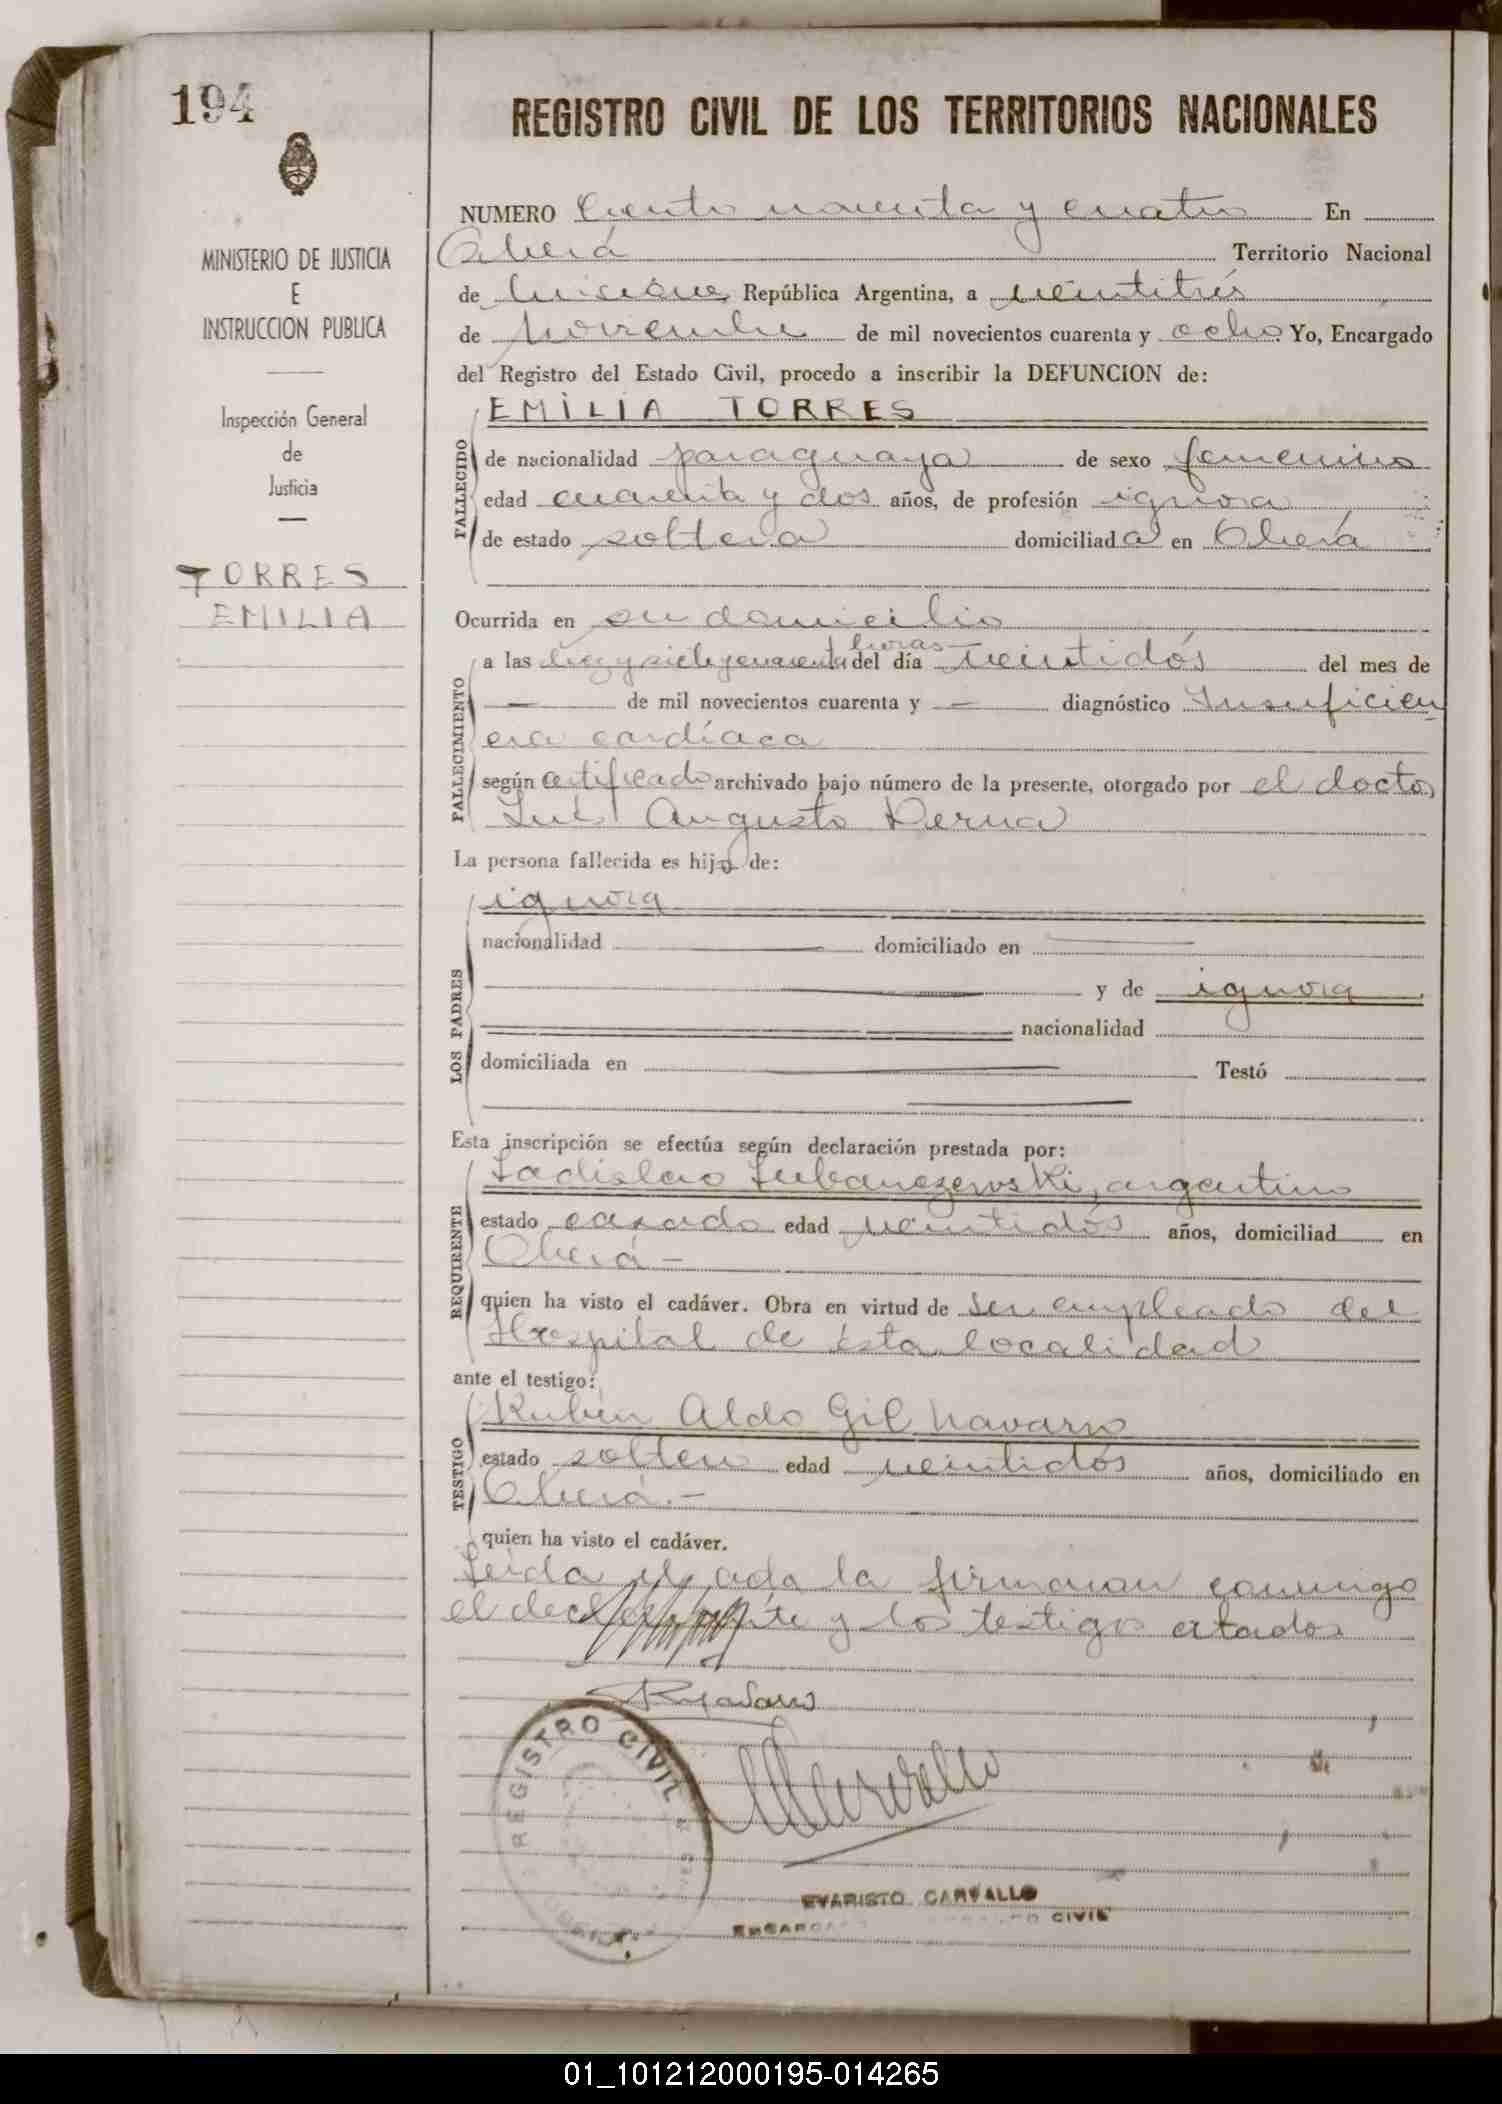 194
REGISTRO CIVIL DE LOS TERRITORIOS NACIONALES
MINISTERIO DE JUSTICIA
E
INSTRUCCION PUBLICA
Inspección General
de
Justicia
TORRES
EMILIA
NUMERO Ciento noventa y cuatro En
Oberá Territorio Nacional
de Misiones República Argentina, a veintitrés
de noviembre de mil novecientos cuarenta y ocho Yo, Encargado
del Registro del Estado Civil, procedo a inscribir la DEFUNCION de:
EMILIA TORRES
FALLECIDO
de nacionalidad paraguaya de sexo femenino
edad cuarenta y dos años, de profesión ignora
de estado soltera domiciliada en Oberá
Ocurrida en su domicilio
horas
FALLECIMIENTO
a las diez y siete y cuarenta del día veintidós del mes de
— de mil novecientos cuarenta y — diagnóstico Insuficien
cia cardíaca
según certificado archivado bajo número de la presente, otorgado por el doctor
Luis Augusto
La persona fallecida es hija de:
LOS PADRES
ignora
nacionalidad — domiciliado en —
— y de ignora
nacionalidad
domiciliada en — Testó
—
Esta inscripción se efectúa según declaración prestada por:
REQUIRENTE
Ladislao Lubanczewski, argentino
estado casado edad veintidós años, domiciliad en
Oberá —
quien ha visto el cadáver. Obra en virtud de ser empleado del
Hospital de ésta localidad
ante el testigo:
TESTIGO
Rubén Aldo Gil Navarro
estado soltero edad veintidós años, domiciliado en
Oberá.—
quien ha visto el cadáver.
Leída el acta la firmaran conmigo
el declarante y los testigos citados
REGISTRO CIVIL
EVARISTO CARVALLO
ENCARGADO REGISTRO CIVIL
01_101212000195-014265